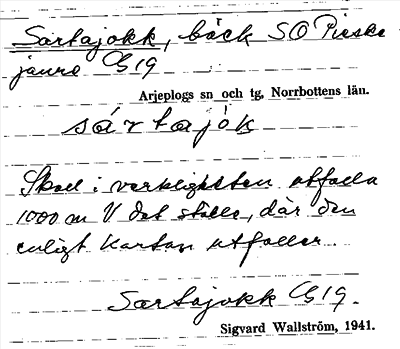 Sartajokk, bäck SO Pieske
jaure G19
Arjeplogs sn och tg, Norrbottens län.
sártajòk
Skall i verkligheten utfalla
1000 m V det ställe, där den
enligt kartan utfaller.
Sartajokk G19.
Sigvard Wallström, 1941.